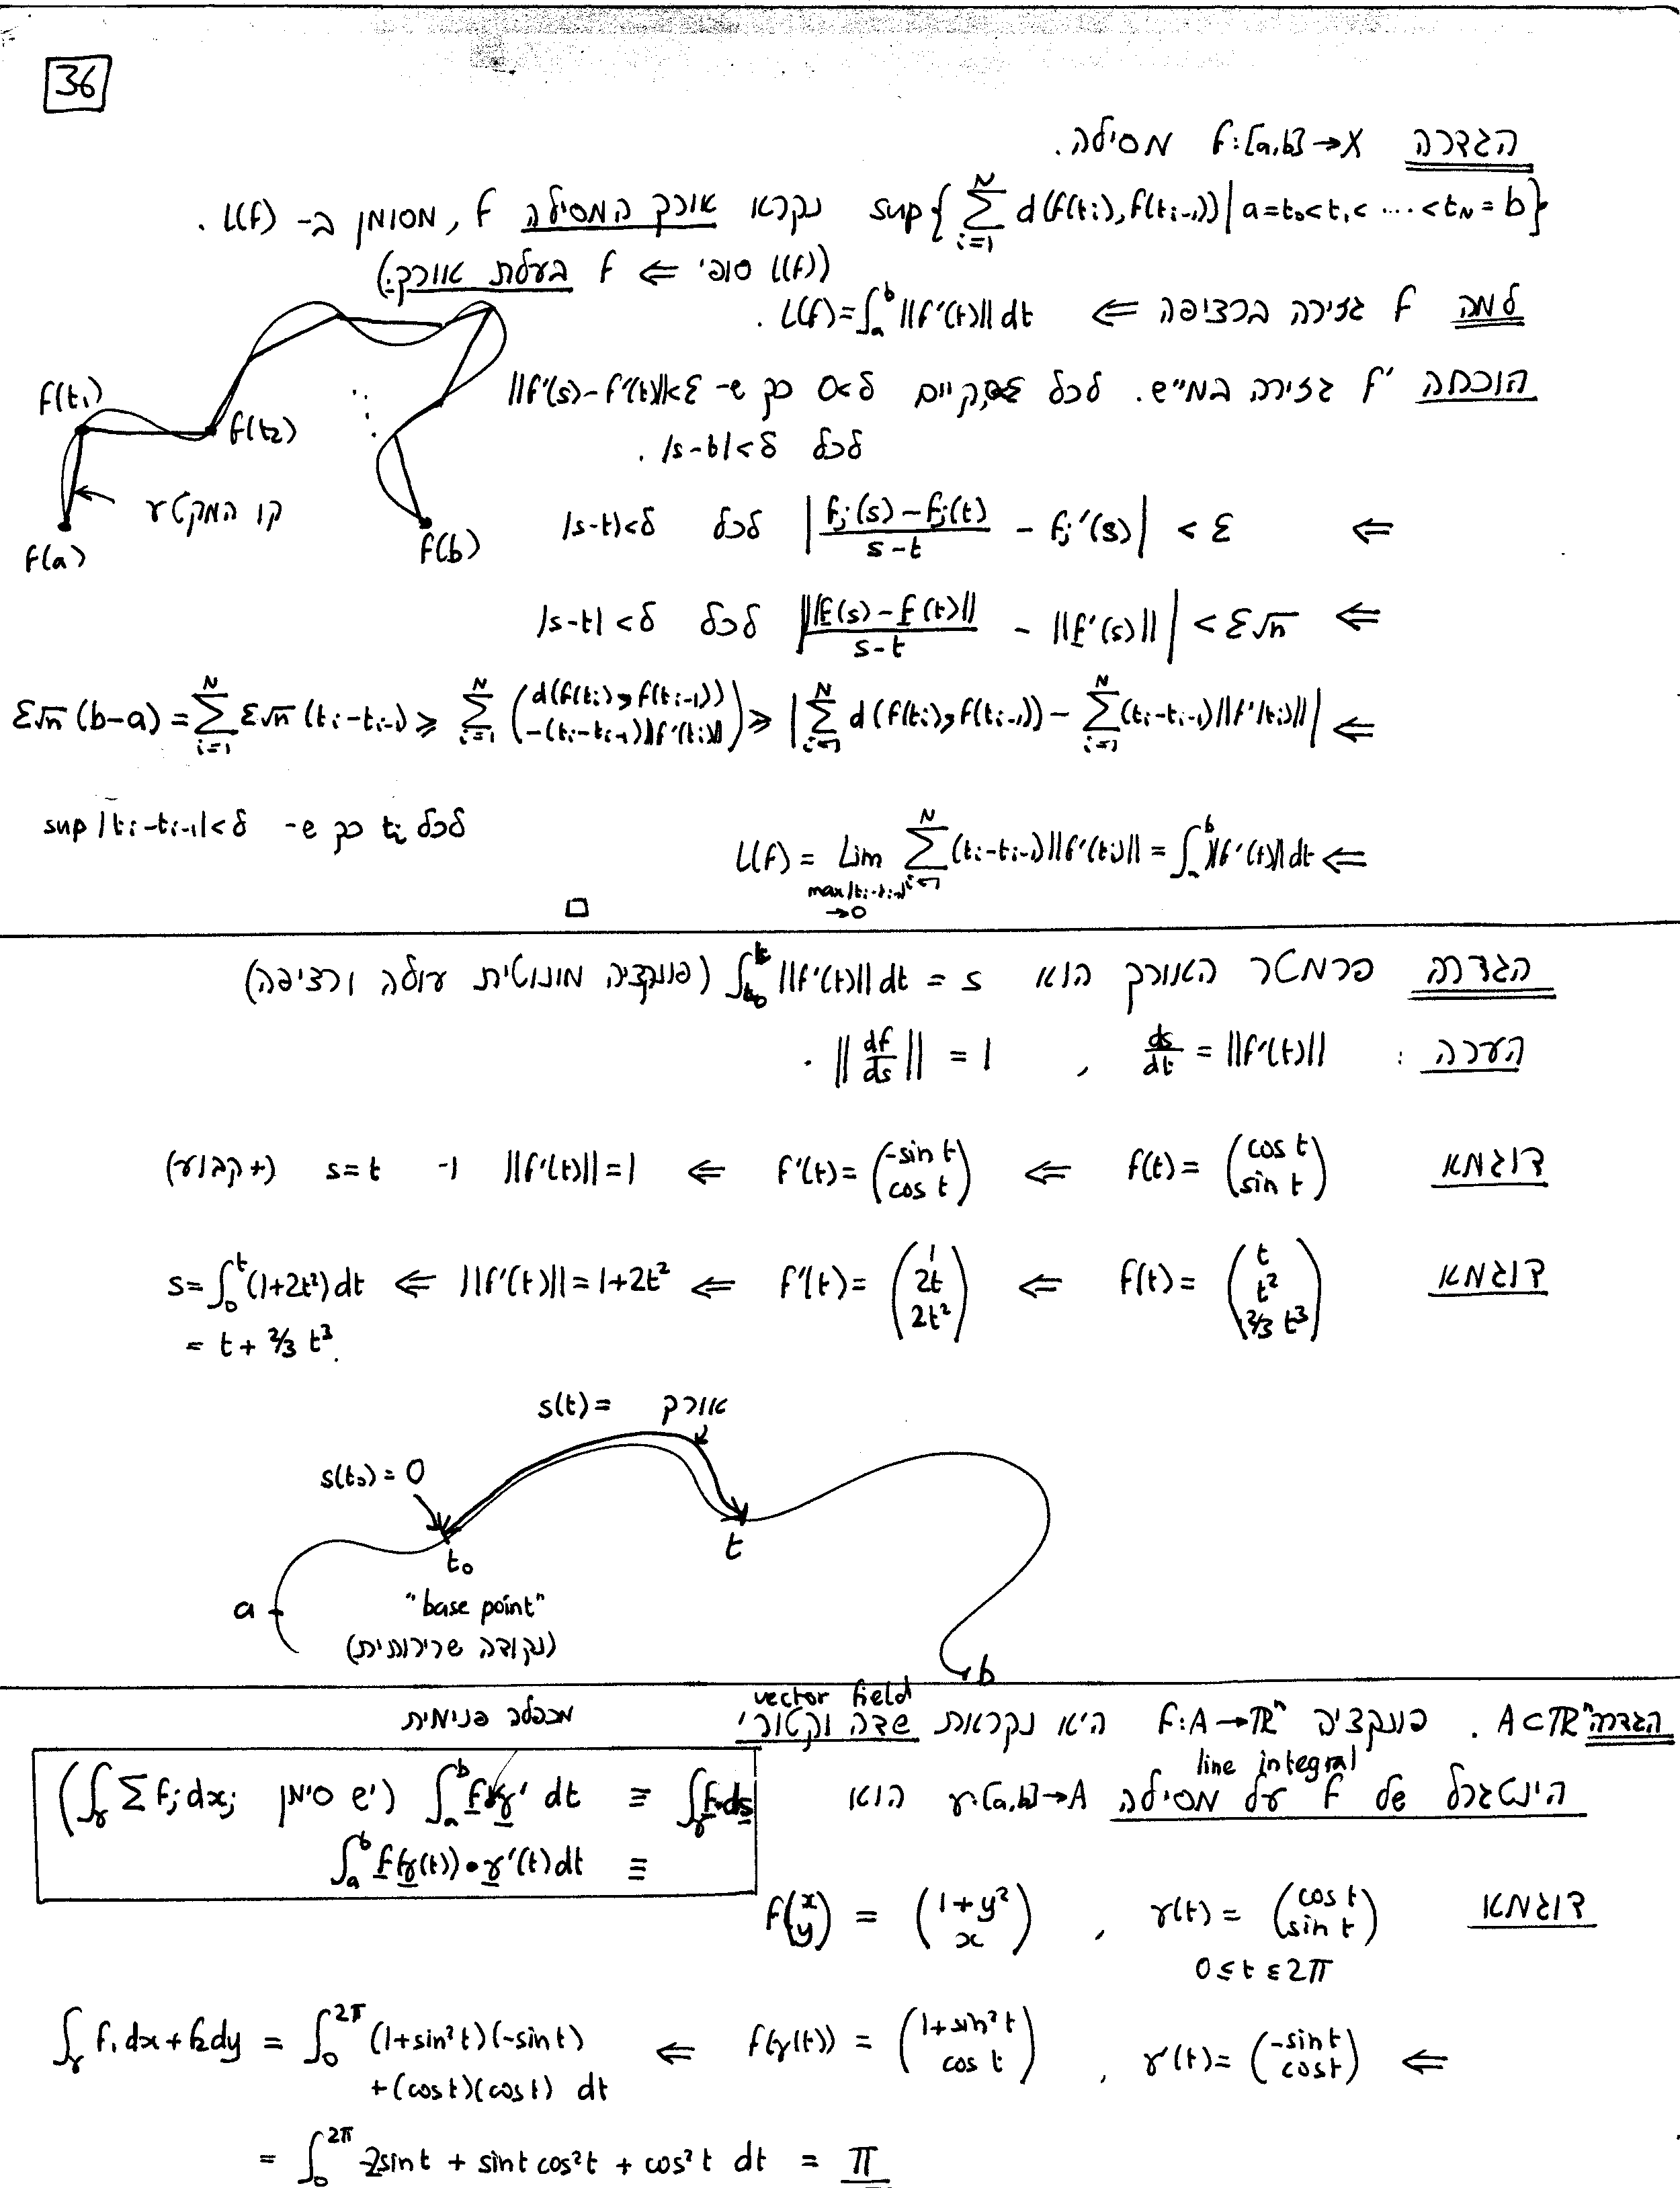 36
הגדרה f:[a,b]→X מסילה.
sup{ \sum_{i=1}^{N} d(f(t_i), f(t_{i-1})) | a=t_0<t_1<⋯<t_N=b } נקרא אורך המסילה f, מסומן ב- l(f).
(l(f) סופי ⇐ f בעלת אורך.)
למה f גזירה ברציפה ⇐ l(f)=∫_a^b ||f'(t)|| dt.
הוכחה f' גזירה במ"ש. לכל קיים δ>0 כך ש- ||f'(s)-f'(t)||<ε
לכל |s-b|<δ.
f(t_1)
f(t_2)
קו המקטע
f(a)
f(b)
⇐ | (f_j(s)-f_j(t))/(s-t) - f_j'(s) | < ε לכל |s-t|<δ
⇐ | ||f(s)-f(t)||/(s-t) - ||f'(s)|| | < ε√n לכל |s-t|<δ
⇐ ε√n (b-a) = \sum_{i=1}^{N} ε√n (t_i-t_{i-1}) ≥ \sum_{i=1}^{N} ( d(f(t_i), f(t_{i-1})) -(t_i-t_{i-1})||f'(t_i)|| ) ≥ | \sum_{i=1}^{N} d(f(t_i), f(t_{i-1})) - \sum_{i=1}^{N} (t_i-t_{i-1})||f'(t_i)|| |
לכל t_i כך ש- sup|t_i-t_{i-1}|<δ
⇐ l(f) = Lim_{max|t_i-t_{i-1}|→0} \sum_{i=1}^{N} (t_i-t_{i-1})||f'(t_i)|| = ∫_a^b ||f'(t)|| dt
□
הגדרה פרמטר האורך הוא ∫_{t_0}^t ||f'(t)|| dt = s (פונקציה מונוטית עולה ורציפה)
הערה: ds/dt = ||f'(t)|| , ||df/ds|| = 1.
דוגמא f(t) = (cos t, sin t) ⇐ f'(t) = (-sin t, cos t) ⇐ ||f'(t)||=1 ו- s=t (+ קבוע)
דוגמא f(t) = (t, t², ⅔ t³) ⇐ f'(t) = (1, 2t, 2t²) ⇐ ||f'(t)|| = 1+2t² ⇐ s=∫_0^t (1+2t²) dt
= t + ⅔ t³.
s(t) = אורך
s(t_0) = 0
t_0
t
a
"base point"
(נקודה שרירותית)
b
vector field
הגדרה A⊂ℝⁿ. פונקציה f:A→ℝⁿ היא נקראת שדה וקטורי
מכפלה פנימית
line integral
הינטגרל של f על מסילה γ:[a,b]→A הוא
∫_γ f·ds ≡ ∫_a^b f·γ' dt (יש סימן ∫_γ Σ f_j dx_j)
≡ ∫_a^b f(γ(t))•γ'(t) dt
דוגמא γ(t) = (cos t, sin t) , f(x, y) = (1+y², x)
0≤t≤2π
⇐ γ'(t) = (-sin t, cos t) , f(γ(t)) = (1+sin² t, cos t) ⇐ ∫_γ f_1 dx + f_2 dy = ∫_0^{2π} (1+sin² t)(-sin t)
+(cos t)(cos t) dt
= ∫_0^{2π} -2sin t + sin t cos² t + cos² t dt = π